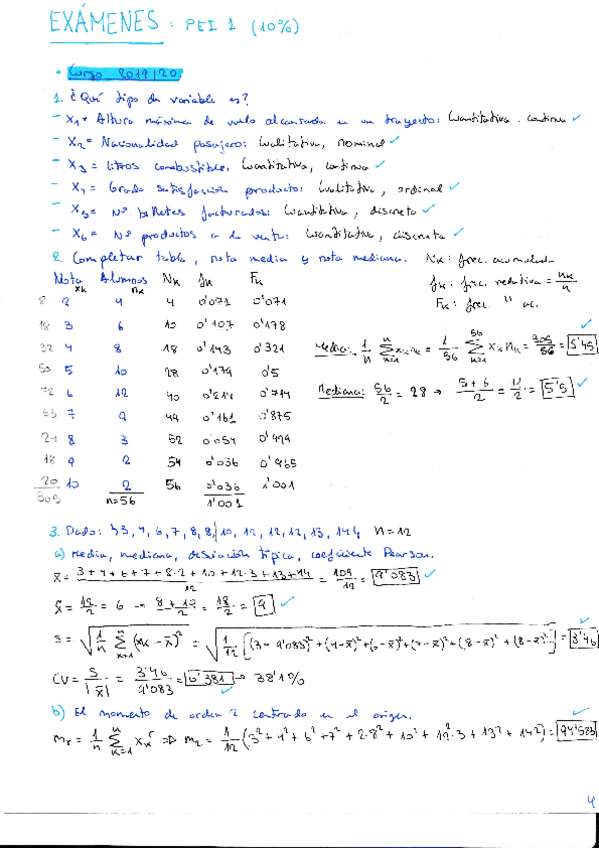 EXÁMENES: PEI 1 (10%)
• Curso 2019/20.
1. ¿Qué tipo de variable es?
- X1 = Altura máxima de vuelo alcanzada en un trayecto: Cuantitativa, continua ✓
- X2 = Nacionalidad pasajero: Cualitativa, nominal ✓
- X3 = litros combustible: Cuantitativa, continua ✓
- X4 = Grado satisfacción producto: Cualitativa, ordinal ✓
- X5 = Nº billetes facturados: Cuantitativa, discreta ✓
- X6 = Nº productos a la venta: Cuantitativa, discreta ✓
2. Completar tabla, nota media y nota mediana. Nk: frec. acumulada
fk: frec. relativa = nk/n
Fk: frec. " ac.
Nota xk Alumnos nk Nk fk Fk
8 2 4 4 0'071 0'071
18 3 6 10 0'107 0'178
32 4 8 18 0'143 0'321
50 5 10 28 0'179 0'5
72 6 12 40 0'214 0'714
63 7 9 49 0'161 0'875
24 8 3 52 0'054 0'929
18 9 2 54 0'036 0'965
20 10 2 56 0'036 1'001
305 n=56 1'001
Media: 1/n Σ xk nk = 1/56 Σ xk nk = 305/56 = 5'45 ✓
Mediana: 56/2 = 28 → 5+6/2 = 11/2 = 5'5 ✓
3. Dado: {3, 4, 6, 7, 8, 8, 10, 12, 12, 12, 13, 14} n=12
a) Media, mediana, desviación típica, coeficiente Pearson.
x̄ = 3+4+6+7+8·2+10+12·3+13+14/12 = 109/12 = 9'083 ✓
x̃ = 12/2 = 6 → 8+10/2 = 18/2 = 9 ✓
s = √(1/n Σ (xk - x̄)²) = √(1/12 [(3-9'083)²+(4-x̄)²+(6-x̄)²+(7-x̄)²+(8-x̄)²+(8-x̄)²...]) = 3'46 ✓
CV = S/|x̄| = 3'46/9'083 = 0'381 → 38'1%
b) El momento de orden 2 centrado en el origen.
mr = 1/n Σ xk^r ⇒ m2 = 1/12 (3²+4²+6²+7²+2·8²+10²+12²·3+13²+14²) = 94'583 ✓
4